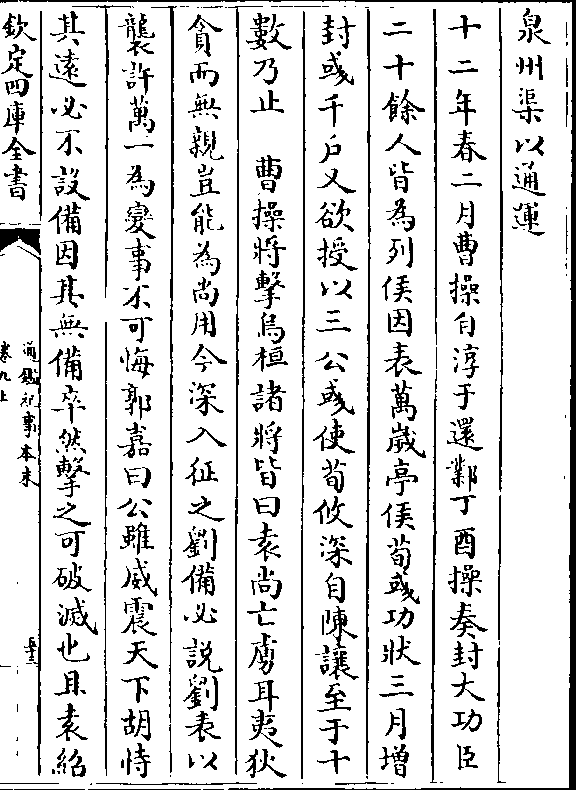 泉州渠以通運
十二年春二月曹操自淳于還鄴丁酉操奏封大功臣
二十餘人皆為列侯因表萬歲亭侯荀彧功狀三月增
封彧千戶又欲授以三公彧使荀攸深自陳讓至于十
數乃止　曹操將擊烏桓諸將皆曰袁尚亡虜耳夷狄
貪而無親豈能為尚用今深入征之劉備必說劉表以
襲許萬一為變事不可悔郭嘉曰公雖威震天下胡恃
其遠必不設備因其無備卒然擊之可破滅也且袁紹
欽定四庫全書
通鑑紀事本末
卷九上